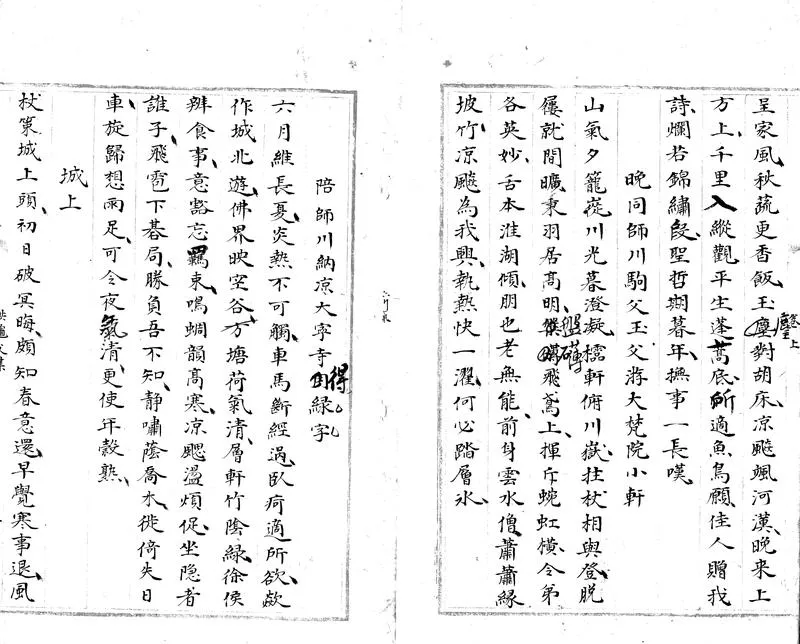 呈家風秋蔬更香飯玉麈對胡床凉飈颯河漢晚来上
方上千里入縱觀平生蓬蒿底所適魚鳥願佳人贈我
詩爛若錦繡段聖哲期暮年撫事一長嘆
晚同師川駒父玉父游大梵院小軒
山氣夕籠蓯川光暮澄凝檽軒俯川嶽拄杖相與登脱
屨就閒曠東羽居髙明盤礴飛鳶上揮斥蜿虹橫令弟
各英妙舌本淮湖傾朋也老無能前身雲水僧蕭蕭緑
坡竹凉飈為我興執熱快一濯何必踏層氷
陪師川納凉大寧寺得緑字
六月維長夏炎熱不可觸車馬斷經過卧疴適所欲歘
作城北遊佛界映空谷方塘荷氣清層軒竹陰緑徐侯
辦食事意豁忘羈束鳴蜩韻髙寒凉颸盪煩促坐隐者
誰子飛雹下碁局勝負吾不知静嘯蔭喬木徙倚失日
車旋歸想雨足可令夜氣清更使年穀熟
城上
杖策城上頭初日破冥晦頗知春意還早覺寒事退風